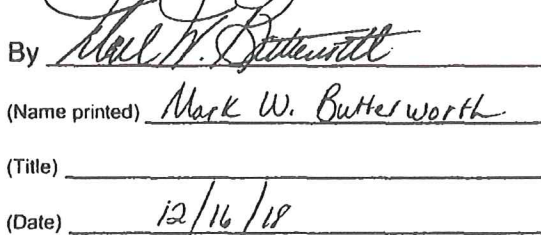 By Mark W. Butterworth
(Name printed) Mark W. Butterworth
(Title)
(Date) 12/16/18